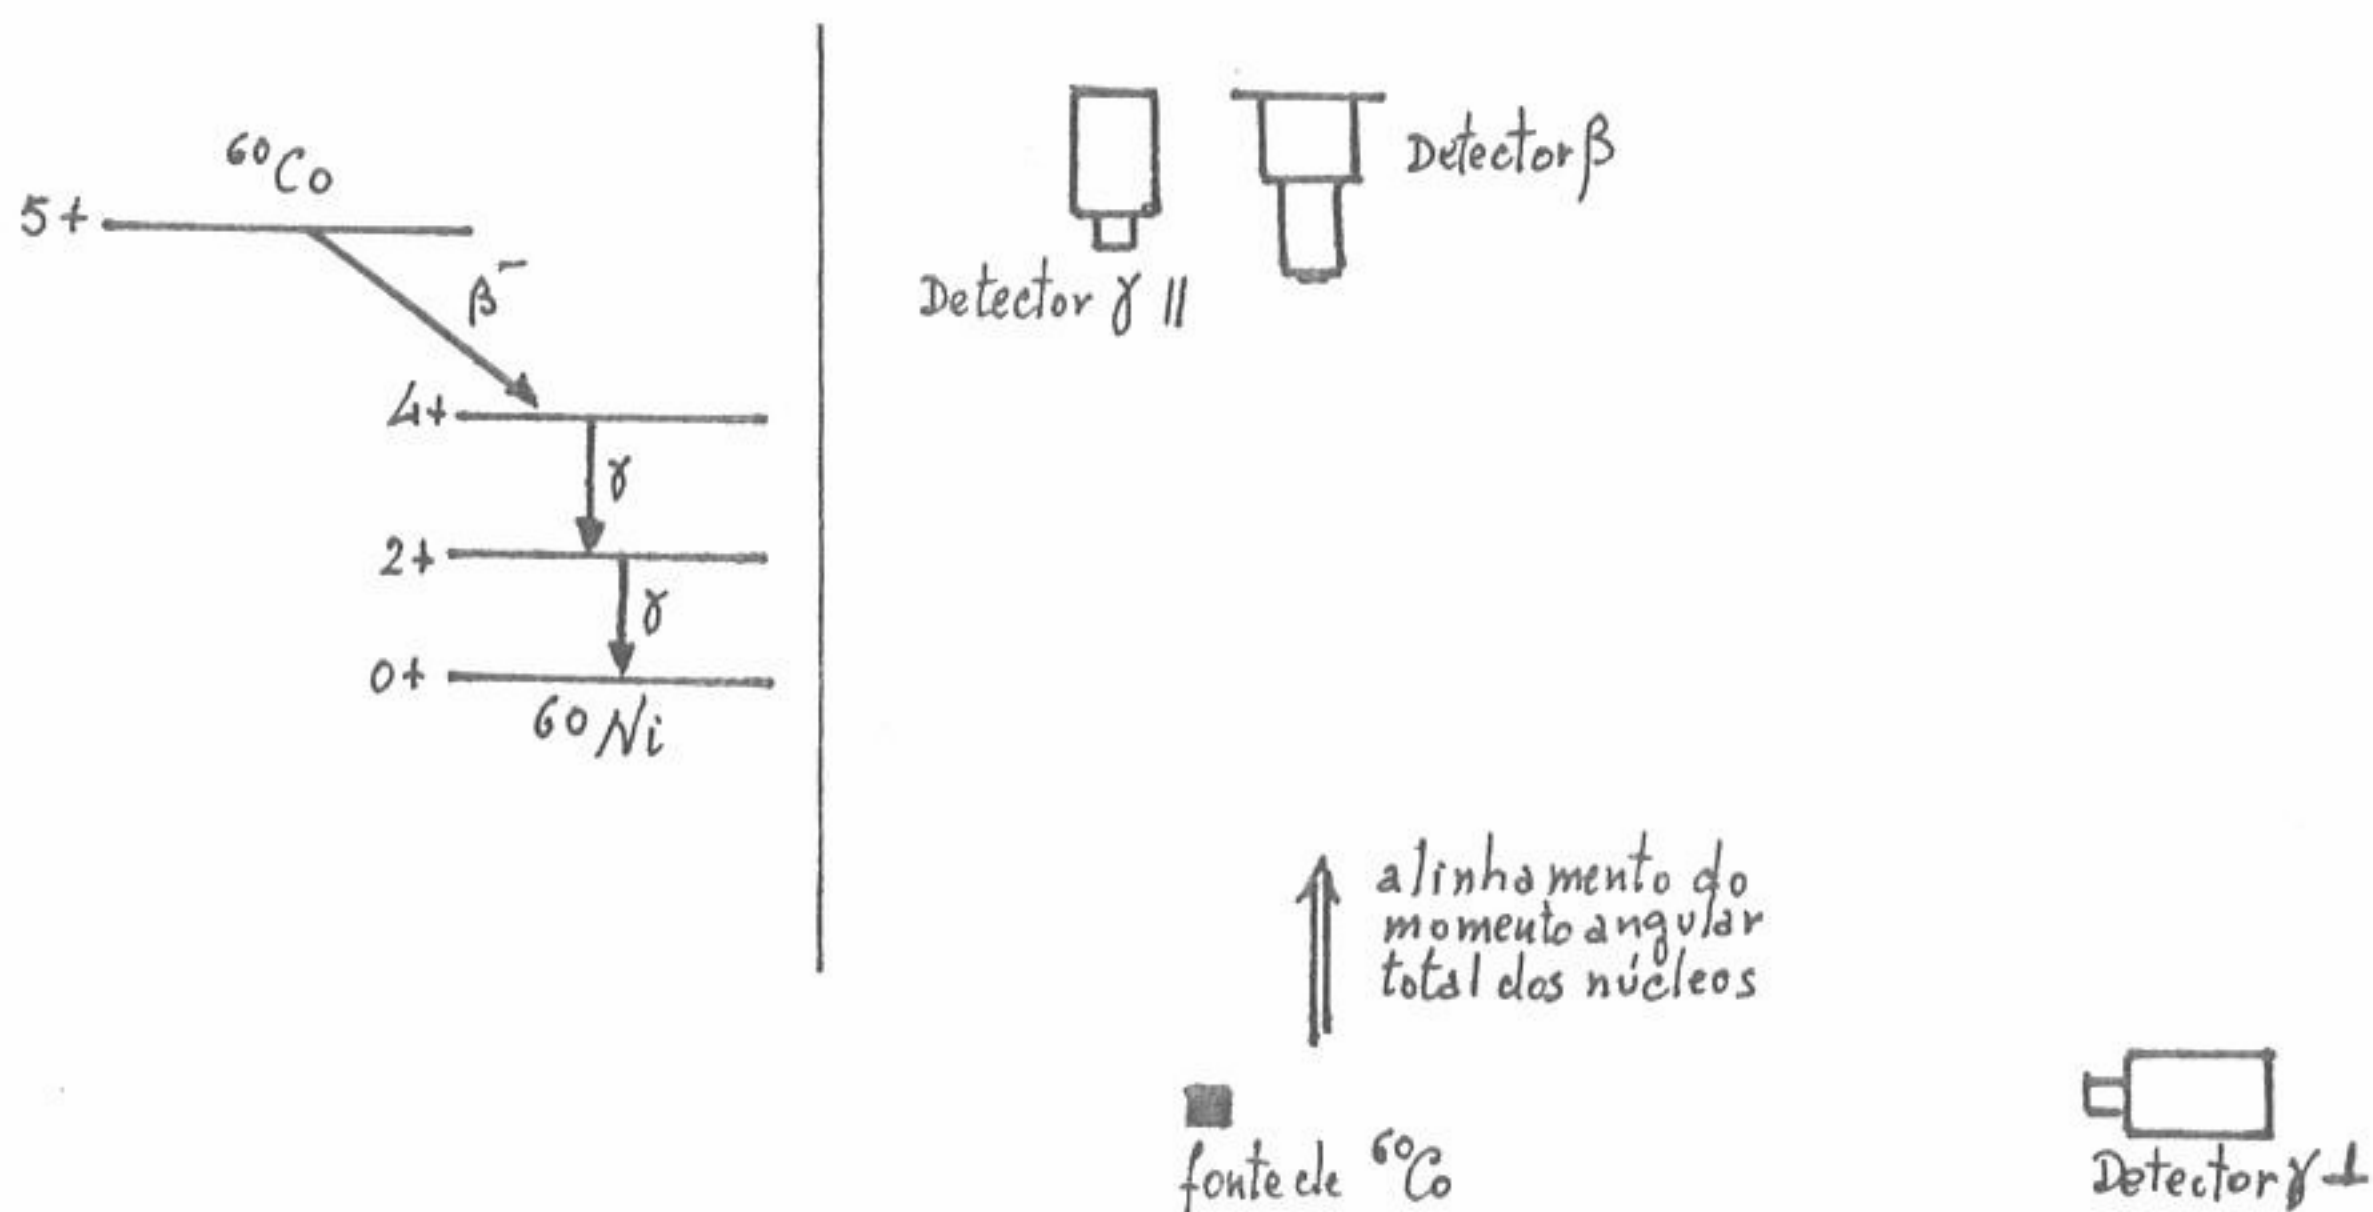 ⁶⁰Co
5+
β⁻
4+
γ
2+
γ
0+
⁶⁰Ni
Detector β
Detector γ ||
alinhamento do
momento angular
total dos núcleos
fonte de ⁶⁰Co
Detector γ ⊥